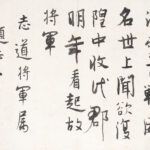 名世上聞欲復
隍中收代郡
明年看起故
將軍
志道將軍属